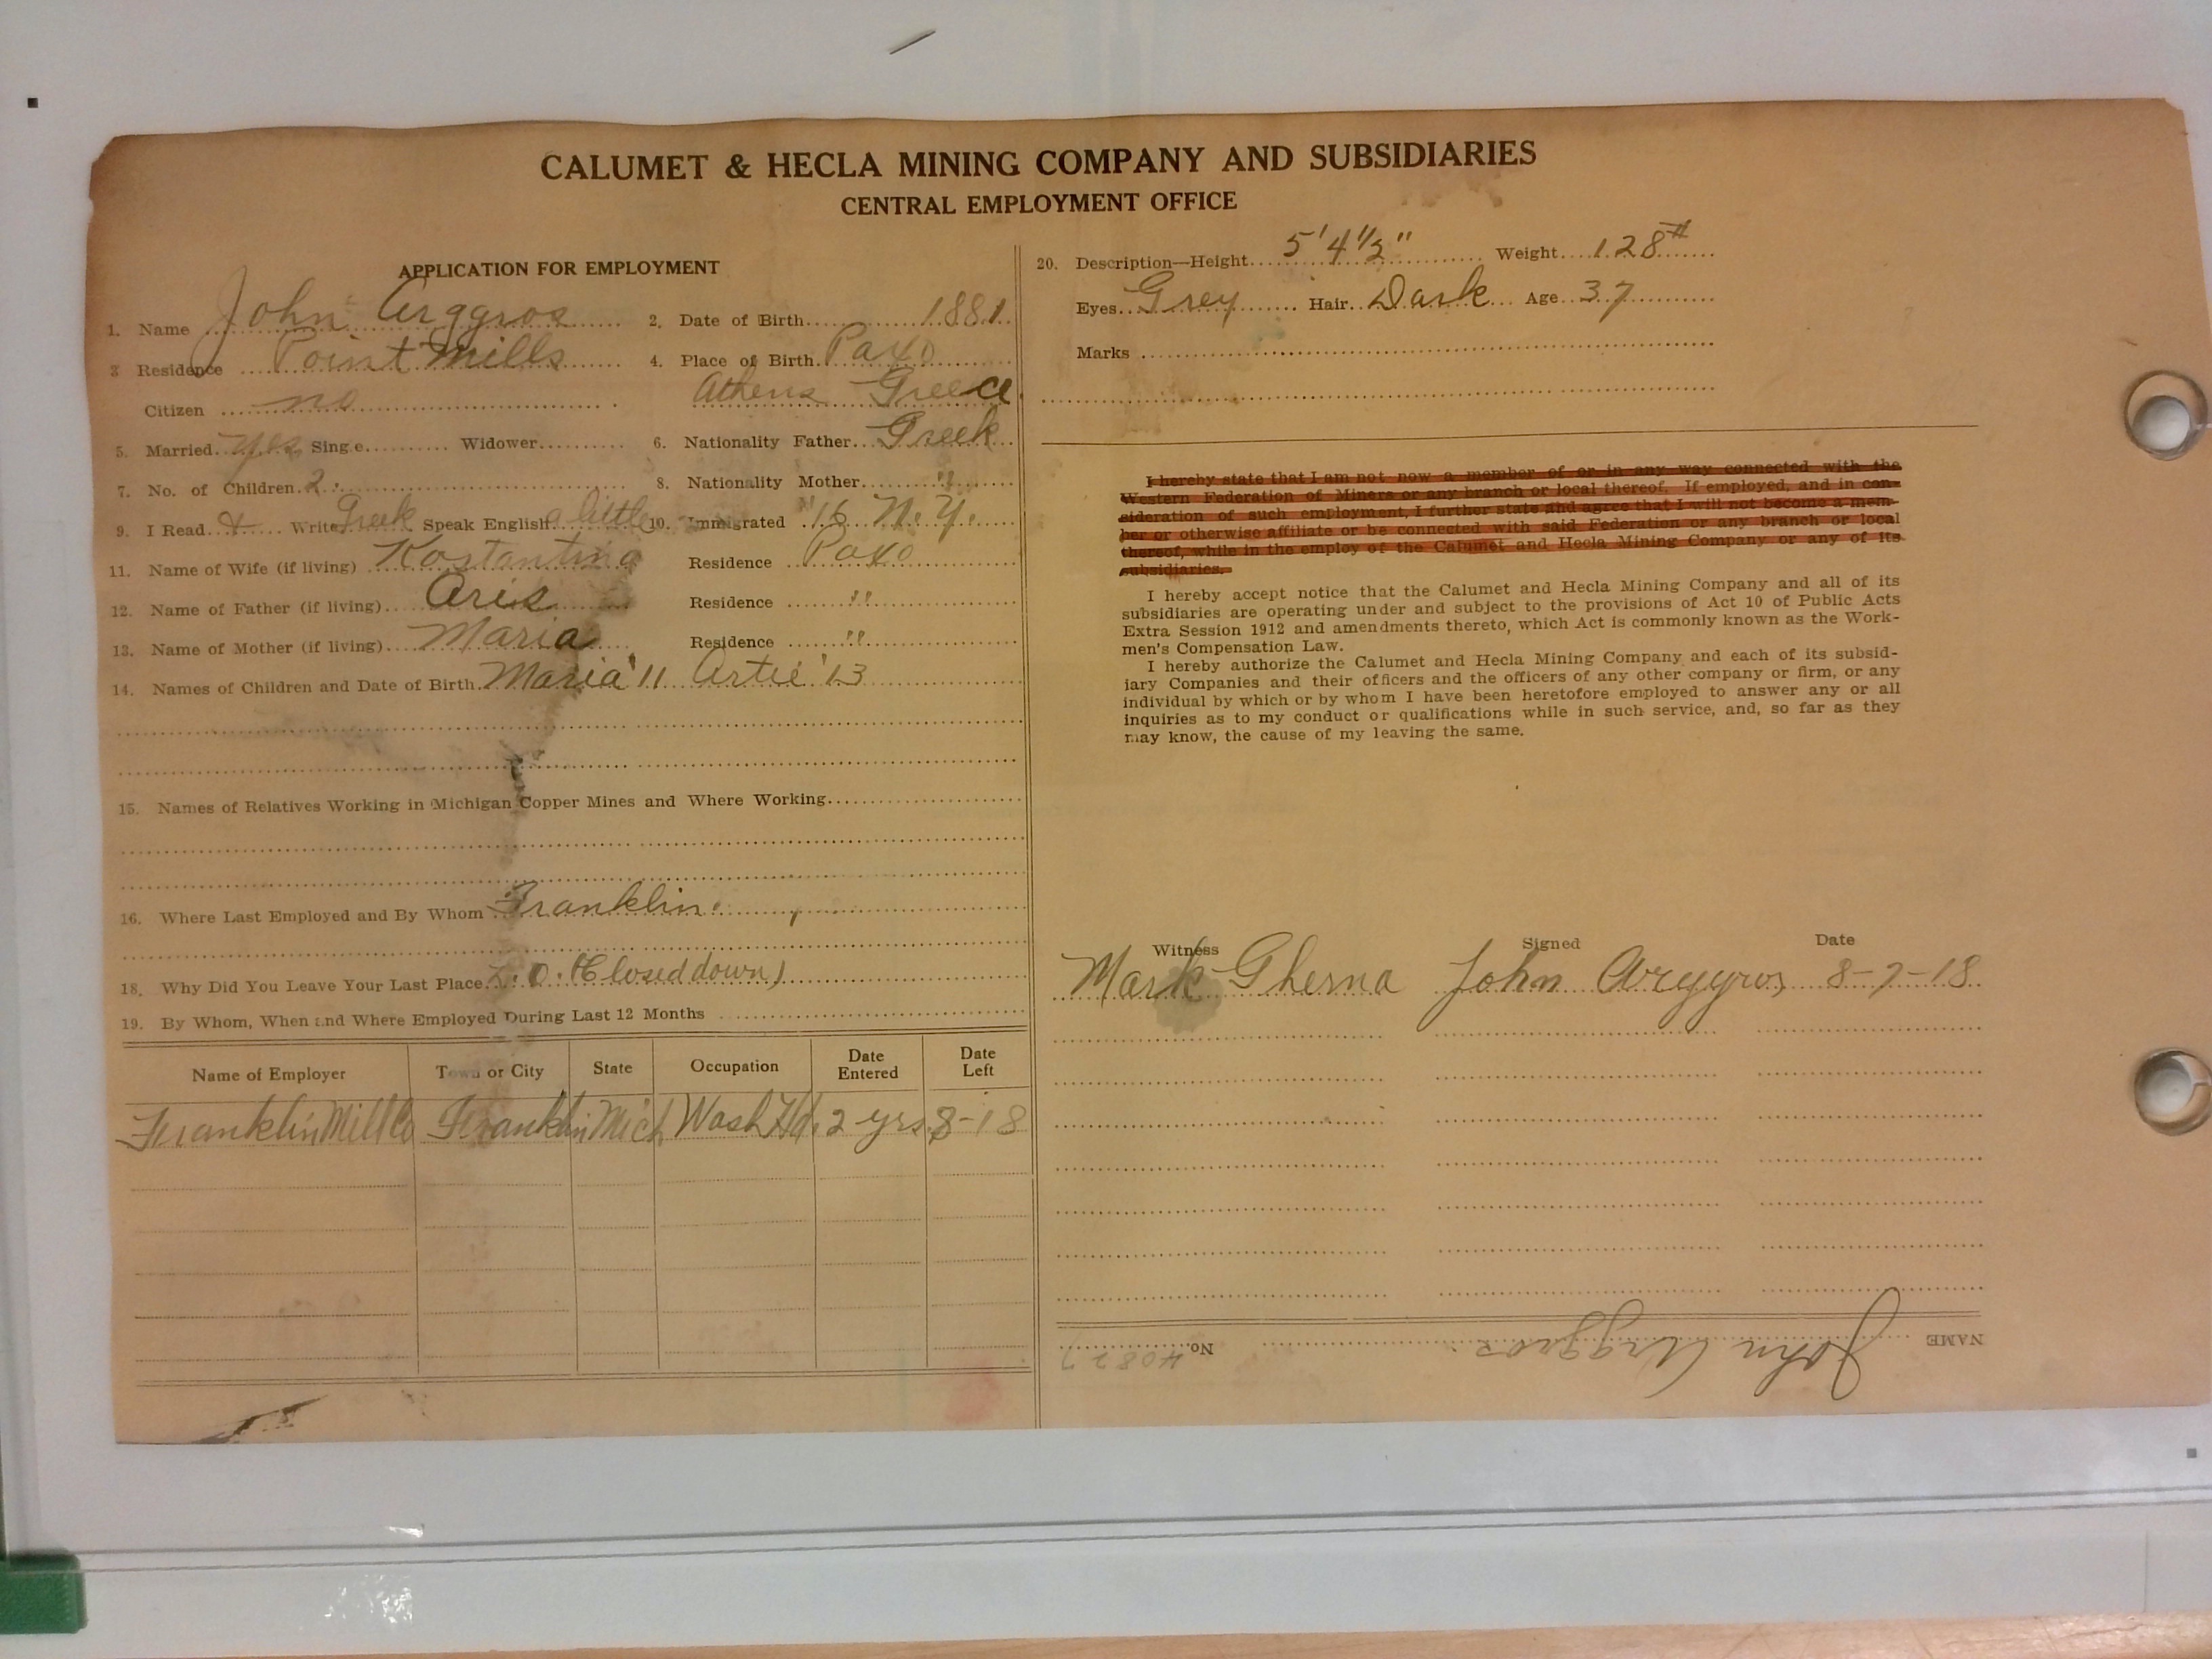 CALUMET & HECLA MINING COMPANY AND SUBSIDIARIES
CENTRAL EMPLOYMENT OFFICE
APPLICATION FOR EMPLOYMENT
1. Name John Arggros 2. Date of Birth 1881
3 Residence Point Mills 4. Place of Birth Paxo
Citizen no Athens Greece
5. Married yes Sing e Widower 6. Nationality Father Greek
7. No. of Children 2. 8. Nationality Mother "
9. I Read & Write Greek Speak English a little 10. Immigrated '16 N.Y.
11. Name of Wife (if living) Kostantina Residence Paxo
12. Name of Father (if living) Aris Residence "
13. Name of Mother (if living) Maria Residence "
14. Names of Children and Date of Birth Maria '11 Artie '13
15. Names of Relatives Working in Michigan Copper Mines and Where Working
16. Where Last Employed and By Whom Franklin.
18. Why Did You Leave Your Last Place (Closed down)
19. By Whom, When and Where Employed During Last 12 Months
Name of Employer Town or City State Occupation Date Entered Date Left
Franklin Mill Co Franklin Mich Wash Hd. 2 yrs. 8-18
20. Description—Height 5' 4 1/2" Weight 128#
Eyes Grey Hair Dark Age 37
Marks
I hereby state that I am not now a member of or in any way connected with the
Western Federation of Miners or any branch or local thereof. If employed, and in con-
sideration of such employment, I further state and agree that I will not become a mem-
ber or otherwise affiliate or be connected with said Federation or any branch or local
thereof, while in the employ of the Calumet and Hecla Mining Company or any of its
subsidiaries.
I hereby accept notice that the Calumet and Hecla Mining Company and all of its
subsidiaries are operating under and subject to the provisions of Act 10 of Public Acts
Extra Session 1912 and amendments thereto, which Act is commonly known as the Work-
men's Compensation Law.
I hereby authorize the Calumet and Hecla Mining Company and each of its subsid-
iary Companies and their officers and the officers of any other company or firm, or any
individual by which or by whom I have been heretofore employed to answer any or all
inquiries as to my conduct or qualifications while in such service, and, so far as they
may know, the cause of my leaving the same.
Witness Signed Date
Mark Gherna John Argyros 8-7-18
NAME John Arggros No. 40827